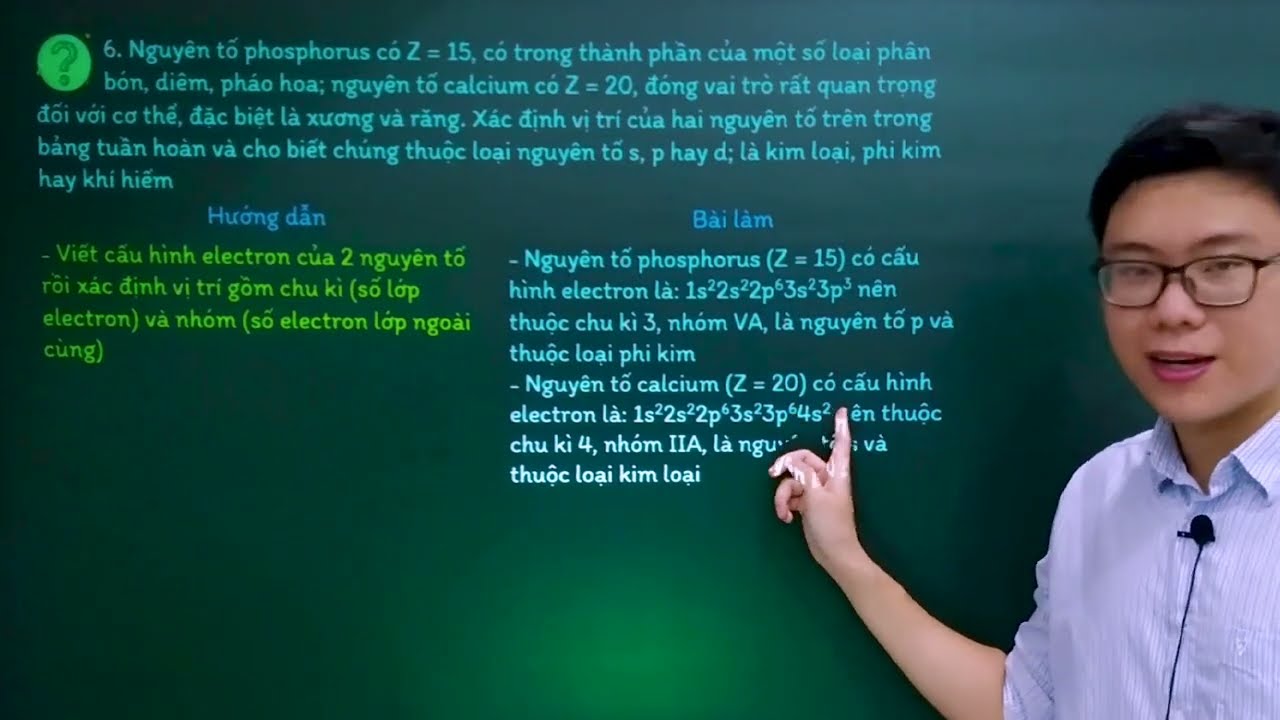 ?
6. Nguyên tố phosphorus có Z = 15, có trong thành phần của một số loại phân
bón, diêm, pháo hoa; nguyên tố calcium có Z = 20, đóng vai trò rất quan trọng
đối với cơ thể, đặc biệt là xương và răng. Xác định vị trí của hai nguyên tố trên trong
bảng tuần hoàn và cho biết chúng thuộc loại nguyên tố s, p hay d; là kim loại, phi kim
hay khí hiếm
Hướng dẫn
- Viết cấu hình electron của 2 nguyên tố
rồi xác định vị trí gồm chu kì (số lớp
electron) và nhóm (số electron lớp ngoài
cùng)
Bài làm
- Nguyên tố phosphorus (Z = 15) có cấu
hình electron là: 1s²2s²2p⁶3s²3p³ nên
thuộc chu kì 3, nhóm VA, là nguyên tố p và
thuộc loại phi kim
- Nguyên tố calcium (Z = 20) có cấu hình
electron là: 1s²2s²2p⁶3s²3p⁶4s² thuộc
chu kì 4, nhóm IIA, là s và
thuộc loại kim loại